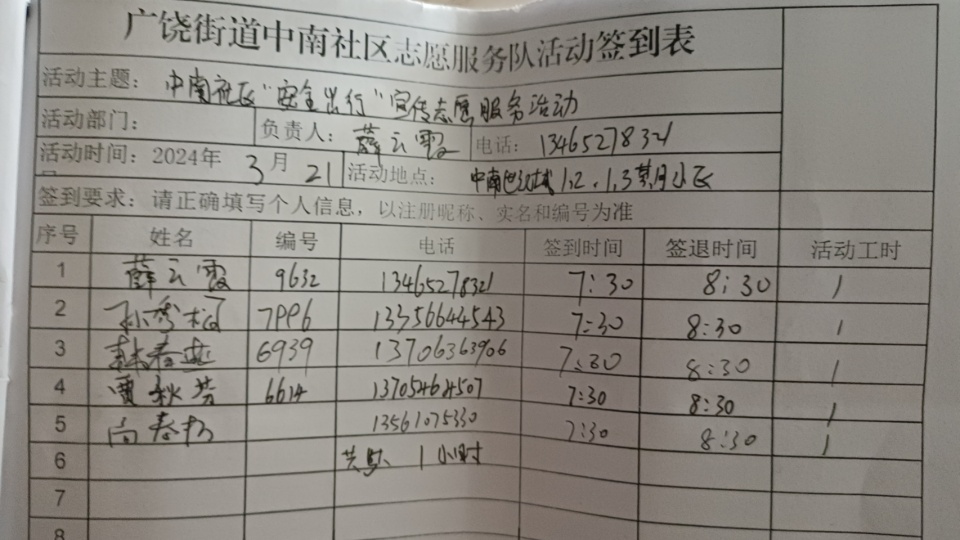 广饶街道中南社区志愿服务队活动签到表
活动主题： 中南社区"安全出行"宣传志愿服务活动
活动部门： 负责人： 薛云霞 电话： 13465278321
活动时间：2024年 3月 21 活动地点： 中南世纪城1.2.1.3期小区
签到要求：请正确填写个人信息，以注册昵称、实名和编号为准
序号 姓名 编号 电话 签到时间 签退时间 活动工时
1 薛云霞 9632 13465278321 7:30 8:30 1
2 孙秀 7996 13356644543 7:30 8:30 1
3 春 6939 13706363906 7:30 8:30 1
4 贾秋芳 6614 13705464507 7:30 8:30 1
5 尚春 13561075330 7:30 8:30 1
6 共 1小时
7
8